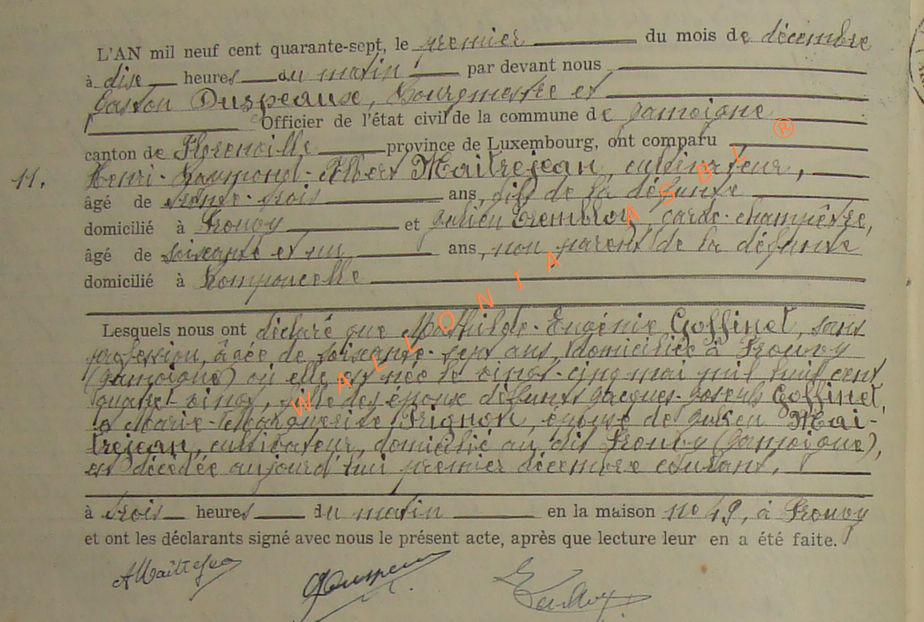 L'AN mil neuf cent quarante-sept, le premier du mois de décembre
à dix heures du matin par devant nous
Gaston Duspeaux, Bourgmestre et
Officier de l'état civil de la commune de Jamoigne
canton de Florenville province de Luxembourg, ont comparu
11. Henri-Raymond-Albert Maitrejean, cultivateur,
âgé de trente-trois ans, fils de la défunte
domicilié à Prouvy et Julien Tremblez, garde-champêtre,
âgé de soixante et un ans, non parent de la défunte
domicilié à Romponcelle
Lesquels nous ont déclaré que Mathilde-Eugénie Goffinet, sans
profession, âgée de soixante-sept ans, domiciliée à Prouvy
(Jamoigne) où elle est née le vingt-cinq mai mil huit cent
quatre vingt, fille des époux défunts Jacques-Joseph Goffinet,
et Marie-Marguerite Frignon, épouse de Julien Mai-
trejean, cultivateur, domicilié au dit Prouvy (Jamoigne),
est décédée aujourd'hui premier décembre courant,
à trois heures du matin en la maison no 49, à Prouvy
et ont les déclarants signé avec nous le présent acte, après que lecture leur en a été faite.
WALLONIA ASBL ®